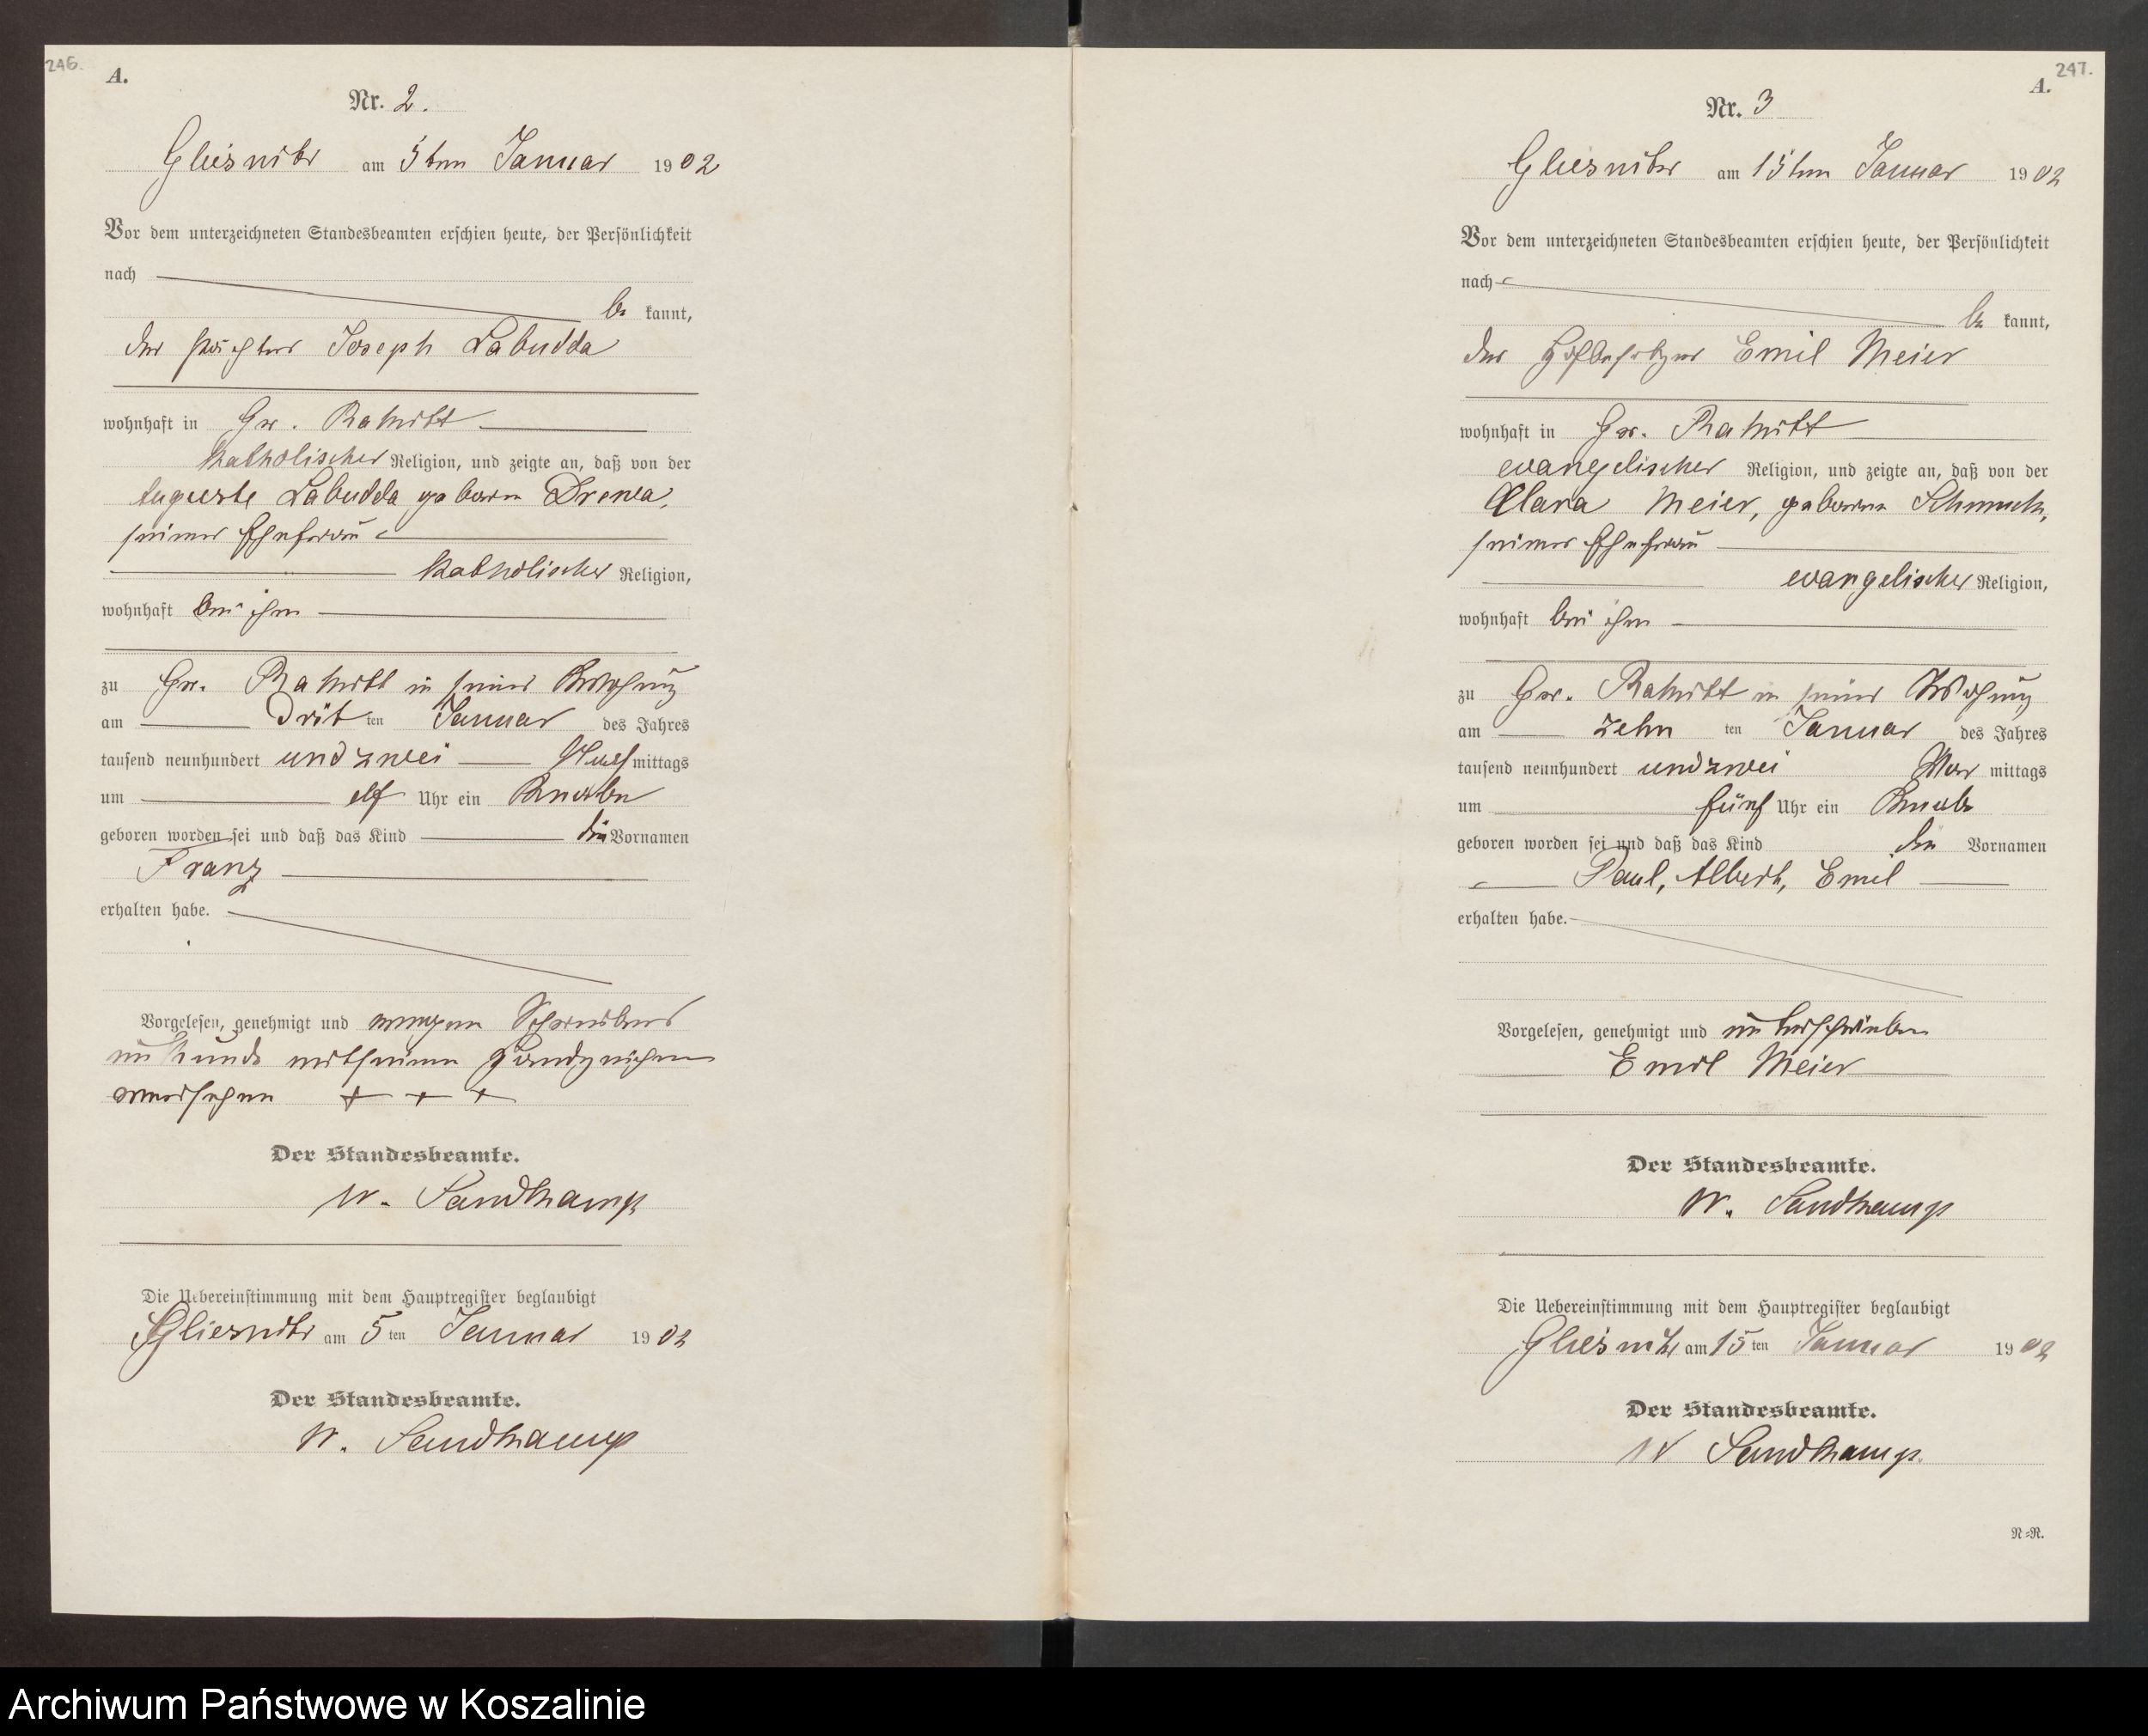 246.
A.
Nr. 2.
Gliesnitz am 5ten Januar 1902
Vor dem unterzeichneten Standesbeamten erschien heute, der Persönlichkeit
nach
be kannt,
der Pächter Joseph Labudda
wohnhaft in Gr. Rakitt
katholischer Religion, und zeigte an, daß von der
Auguste Labudda geboren Drewa,
seiner Ehefrau
katholischer Religion,
wohnhaft bei ihm
zu Gr. Rakitt in seiner Wohnung
am dritten Januar des Jahres
tausend neunhundert und zwei Nachmittags
um elf Uhr ein Knabe
geboren worden sei und daß das Kind die Vornamen
Franz
erhalten habe.
Vorgelesen, genehmigt und wegen Schreibens
unkunde mit seinem Handzeichen
versehen + + +
Der Standesbeamte.
W. Sandkamp
Die Uebereinstimmung mit dem Hauptregister beglaubigt
Gliesnitz am 5ten Januar 1902
Der Standesbeamte.
W. Sandkamp
247.
A.
Nr. 3
Gliesnitz am 15ten Januar 1902
Vor dem unterzeichneten Standesbeamten erschien heute, der Persönlichkeit
nach
be kannt,
der Hofbesitzer Emil Meier
wohnhaft in Gr. Rakitt
evangelischer Religion, und zeigte an, daß von der
Clara Meier, geboren Schmuck,
seiner Ehefrau
evangelischer Religion,
wohnhaft bei ihm
zu Gr. Rakitt in seiner Wohnung
am zehn ten Januar des Jahres
tausend neunhundert und zwei Vor mittags
um fünf Uhr ein Knabe
geboren worden sei und daß das Kind die Vornamen
Paul, Albert, Emil
erhalten habe.
Vorgelesen, genehmigt und unterschrieben
Emil Meier
Der Standesbeamte.
W. Sandkamp
Die Uebereinstimmung mit dem Hauptregister beglaubigt
Gliesnitz am 15ten Januar 1902
Der Standesbeamte.
W Sandkamp.
N=R.
Archiwum Państwowe w Koszalinie